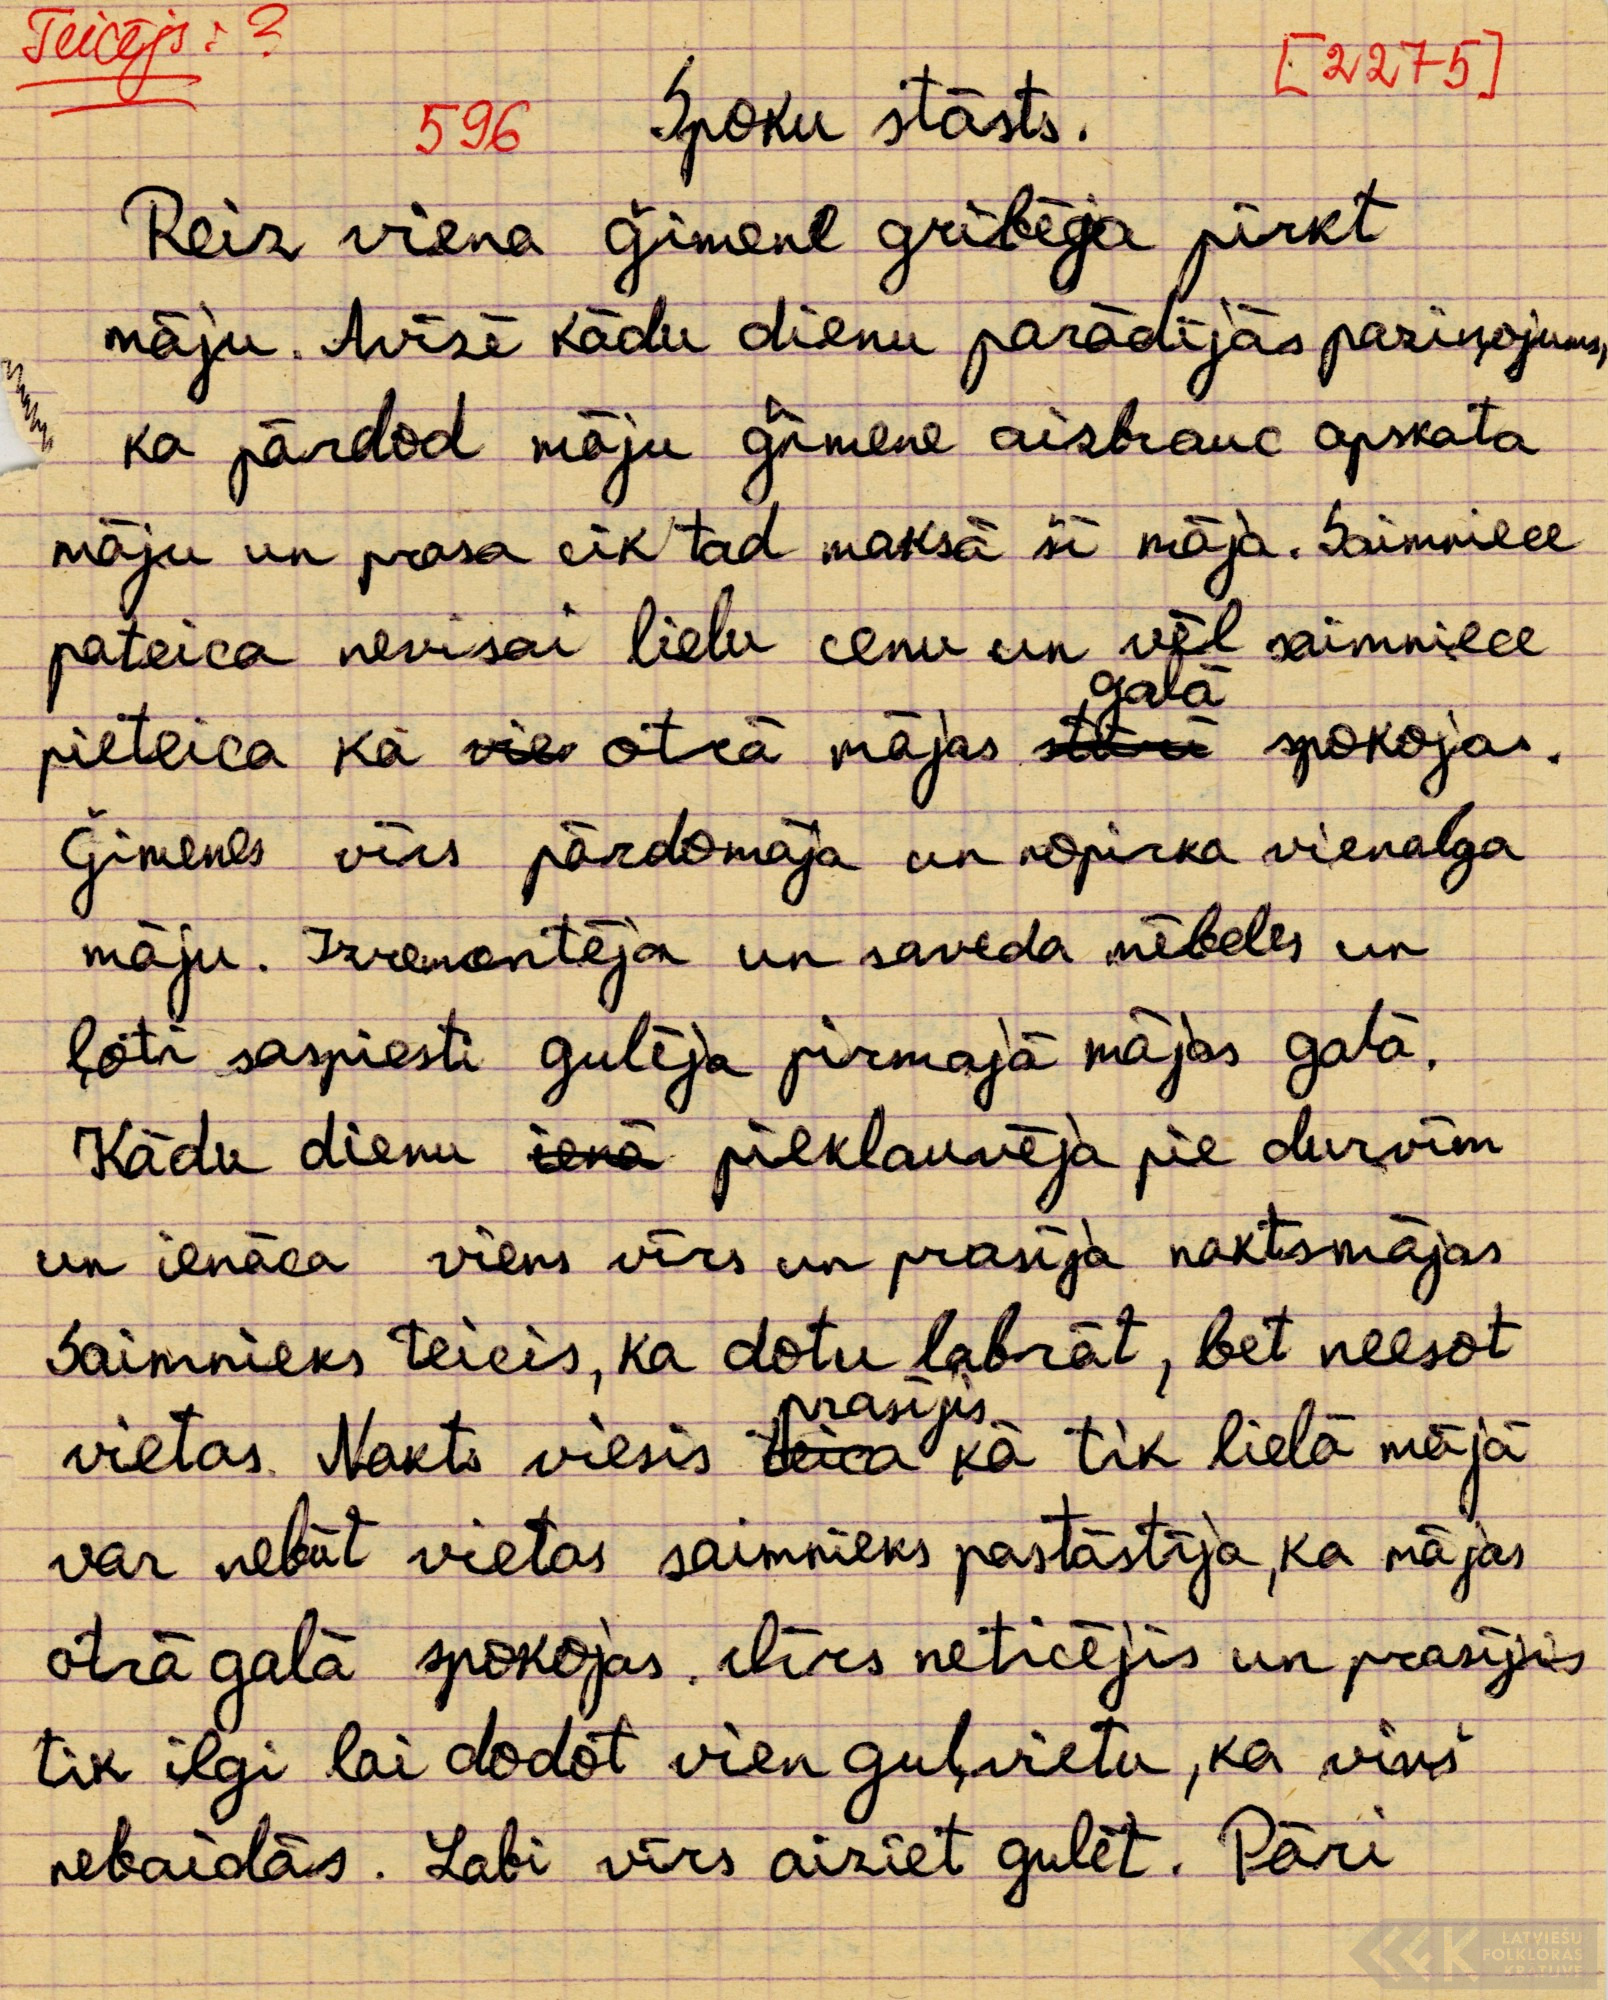 Teicējs: ?
[2275]
596 Spoku stāsts.
Reiz viena ģimene gribēja pirkt
māju. Avīzē kādu dienu parādījās paziņojums,
ka pārdod māju ģimene aizbrauc apskata
māju un prasa cik tad maksā šī māja. Saimniece
pateica nevisai lielu cenu un vēl saimniece
galā
pieteica ka vie otrā mājas stūrī spokojas.
Ģimenes vīrs pārdomāja un nopirka vienalga
māju. Izremontēja un saveda mēbeles un
ļoti saspiesti gulēja pirmajā mājas galā.
Kādu dienu ienā pieklauvēja pie durvīm
un ienāca viens vīrs un prasīja naktsmājas
Saimnieks teicis, ka dotu labrāt, bet neesot
prasījis
vietas. Nakts viesis teica kā tik lielā mājā
var nebūt vietas saimnieks pastāstīja, ka mājas
otrā galā spokojas. Vīrs neticējis un prasījis
tik ilgi lai dodot vien guļvietu, ka viņš
nebaidās. Labi vīrs aiziet gulēt. Pāri
LATVIEŠU
FOLKLORAS
KRĀTUVE